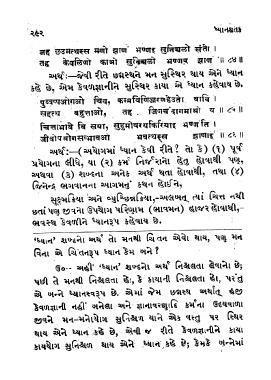 ૨૯૨ ધ્યાનશતક
जह छउमत्थस्स मणो झाणं भण्णइ सुनिच्चलो संतो ।
तह केवलिणो काओ सुनिच्चलो भण्णइ झाणं ॥ ८४ ॥
અર્થ:—જેવી રીતે છદ્મસ્થને મન સુસ્થિર થાય એને ધ્યાન
કહે છે, એમ કેવળજ્ઞાનીને સુસ્થિર કાયા એ ધ્યાન કહેવાય છે.
पुव्वप्पओगओ चिय कम्मविणिज्जरणहेउतो यावि ।
सद्दत्थ बहुत्ताओ, तह जिणचंदागमाओ य ॥ ८५ ॥
चित्ताभावे वि सया, सुहुमोवरयकिरियाइ भण्णंति ।
जीवोवओगसब्भावओ भवत्थस्स झाणाइं ॥ ८६ ॥
અર્થ:—(અયોગમાં ધ્યાન કેવી રીતે ? તો કે) (૧) પૂર્વ
પ્રયોગના લીધે, યા (૨) કર્મ નિર્જરાનો હેતુ હોવાથી પણ,
અથવા (૩) શબ્દના અનેક અર્થ થતા હોવાથી, તથા (૪)
જિનેન્દ્ર ભગવાનના આગમનું કથન હોઈને,
સૂક્ષ્મક્રિયા અને વ્યુચ્છિન્નક્રિયા,-અલબત્ ત્યાં ચિત્ત નથી
છતાં પણ જીવનો ઉપયોગ પરિણામ (ભાવમન) હાજર હોવાથી,-
ભવસ્થ કેવળીને ધ્યાનરૂપ કહેવાય છે.
'ધ્યાન' શબ્દનો અર્થ તો મનથી ચિંતન એવો થાય, પણ મન
વિના એ ચિંતનરૂપ ધ્યાન કેમ બને ?
ઉ૦-- અહીં 'ધ્યાન' શબ્દનો અર્થ નિશ્ચલતા લેવાનો છે;
પછી તે મનથી નિશ્ચલતા હો, કે કાયાની નિશ્ચલતા હો, પરંતુ
એ બન્ને ધ્યાનસ્વરૂપ છે. એમાં જેમ છદ્મસ્થ અર્થાત્ હજી
કેવળજ્ઞાની નહીં બનેલા અને જ્ઞાનાવરણાદિ કર્મના ઉદયવાળા
જીવને મન-મનોયોગ સુનિશ્ચળ યાને એક વસ્તુ પર સ્થિર
થાય એને ધ્યાન કહે છે, એવી જ રીતે કેવળજ્ઞાનીને કાયા
કાયયોગ સુનિશ્ચળ થાય એને ધ્યાન કહે છે; કેમકે બન્નેમાં